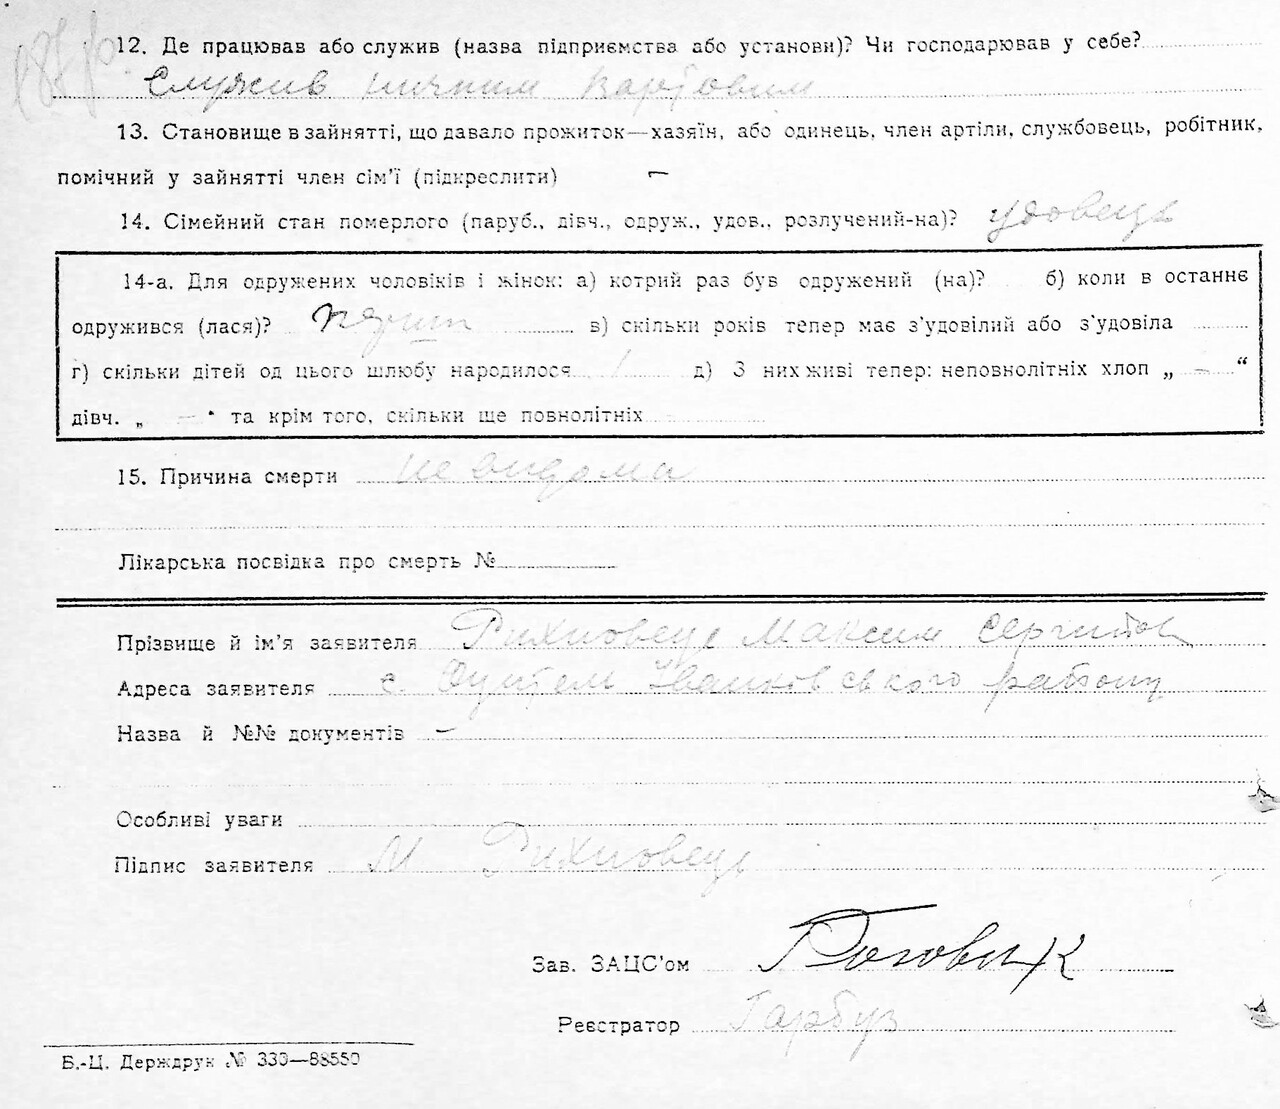 12. Де працював або служив (назва підприємства або установи)? Чи господарював у себе?
Служив нічним вартовим
13. Становище в зайнятті, що давало прожиток—хазяїн, або одинець, член артіли, службовець, робітник,
помічний у зайнятті член сім'ї (підкреслити) —
14. Сімейний стан померлого (паруб., дівч., одруж., удов., розлучений-на)? удовець
14-а. Для одружених чоловіків і жінок: а) котрий раз був одружений (на)? б) коли в останнє
одружився (лася)? в) скільки років тепер має з'удовілий або з'удовіла
г) скільки дітей од цього шлюбу народилося 1 д) З них живі тепер: неповнолітніх хлоп „ — “
дівч. „ — “ та крім того, скільки ще повнолітніх
15. Причина смерти не видома
Лікарська посвідка про смерть №
Прізвище й ім'я заявителя Рихновець Максим
Адреса заявителя с. Іванковського району
Назва й №№ документів —
Особливі уваги
Підпис заявителя М Рихновець
Зав. ЗАЦС'ом
Реєстратор Гарбуз
Б.-Ц. Держдрук № 330—88550